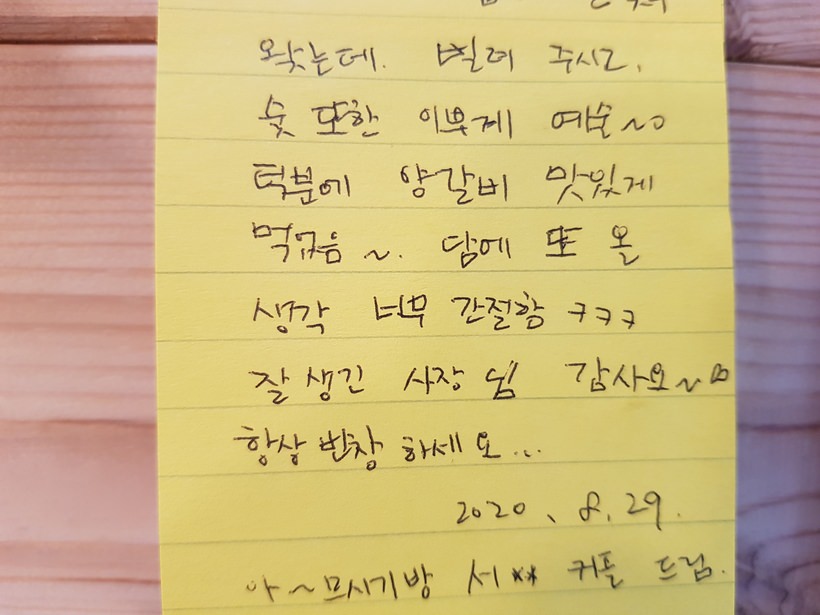 왓는데. 빌려 주시고,
숯 또한 이쁘게 예술~♡
덕분에 양갈비 맛있게
먹었음~. 담에 또 올
생각 너무 간절함 ㅋㅋㅋ
잘생긴 사장님 감사요~♡
항상 번창 하세요...
2020. 8. 29.
아~므시기방 서** 커플 드림.